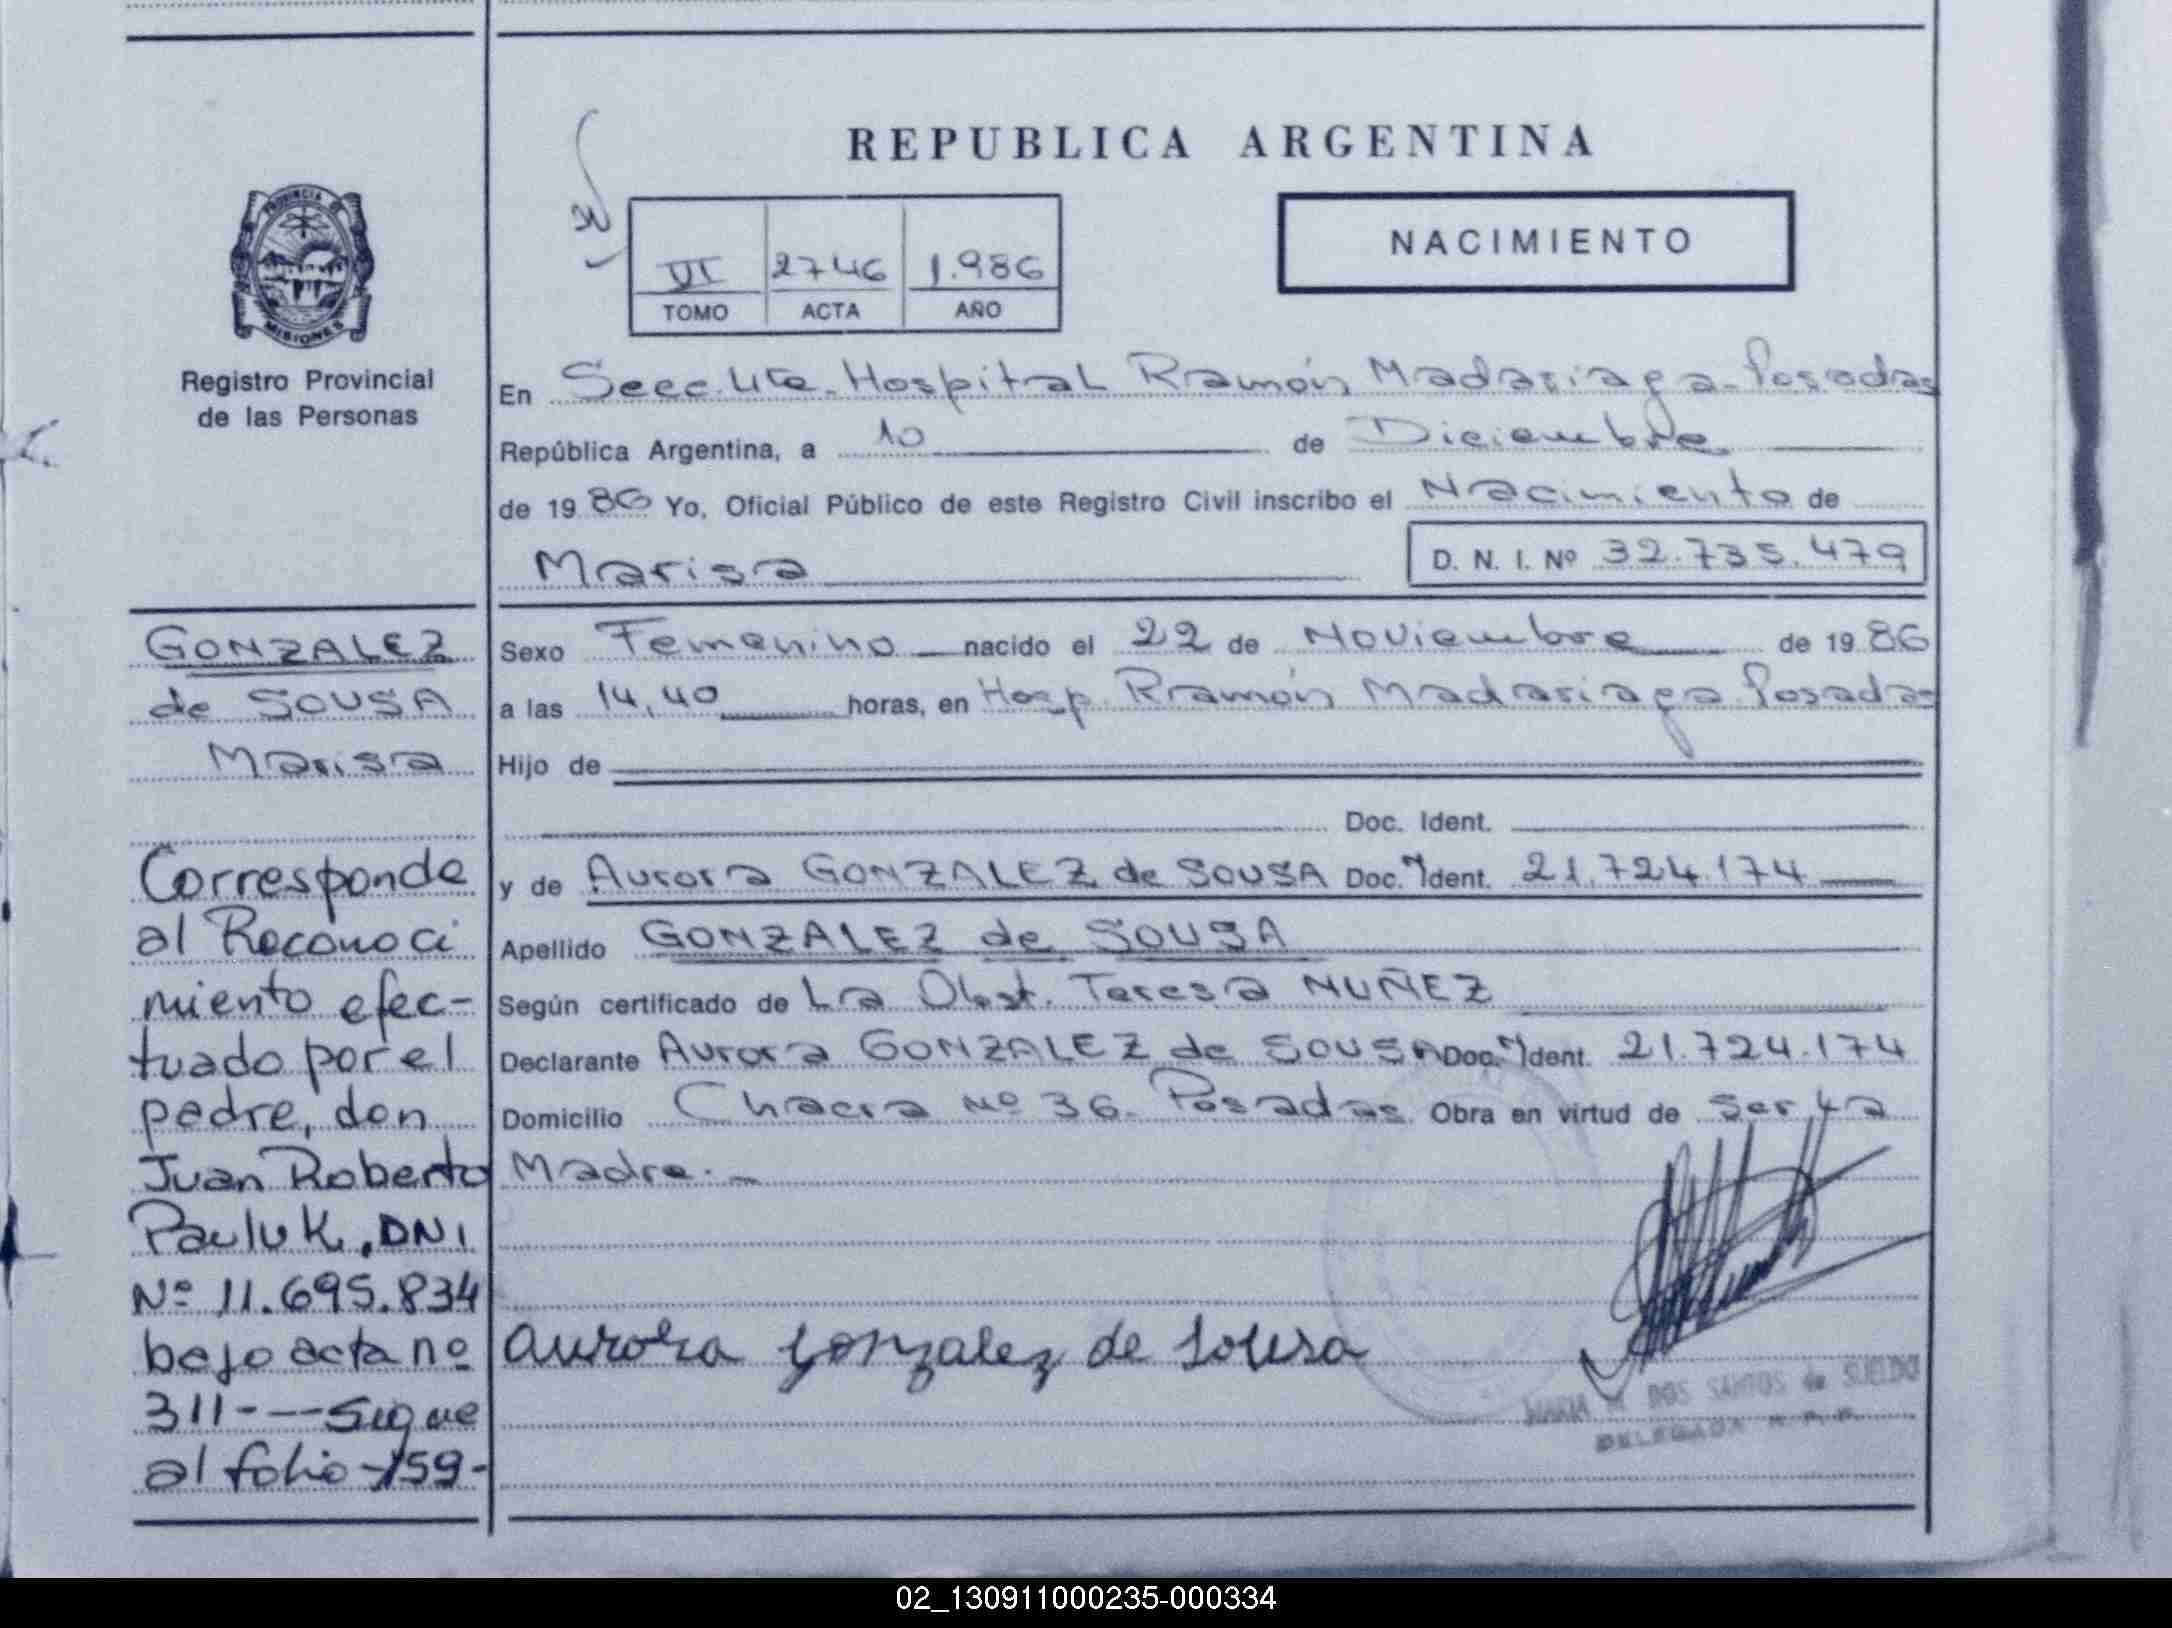 REPUBLICA ARGENTINA
NACIMIENTO
VI 2746 1.986
TOMO ACTA AÑO
PROVINCIA DE
MISIONES
Registro Provincial
de las Personas
En Secc. 4ta. Hospital Ramón Madariaga - Posadas
República Argentina, a 10 de Diciembre
de 1986 Yo, Oficial Público de este Registro Civil inscribo el Nacimiento de
Marisa D. N. I. Nº 32.735.479
Sexo Femenino nacido el 22 de Noviembre de 1986
a las 14,40 horas, en Hosp. Rramón Madariaga Posadas
Hijo de
Doc. Ident.
y de Aurora GONZALEZ de SOUSA Doc. Ident. 21.724.174
Apellido GONZALEZ de SOUSA
Según certificado de La Obst. Teresa NUÑEZ
Declarante Aurora GONZALEZ de SOUSA Doc. Ident. 21.724.174
Domicilio Chacra Nº 36. Posadas Obra en virtud de ser la
Madre.-
Aurora Gonzalez de Sousa
MARIA M. DOS SANTOS de SUELDO
DELEGADA R. P. P.
GONZALEZ
de SOUSA
Marisa
Corresponde
al Reconoci
miento efec-
tuado por el
padre, don
Juan Roberto
Pauluk, DNI
Nº 11.695.834
bajo acta nº
311- --Sigue
al folio -159-
02_130911000235-000334